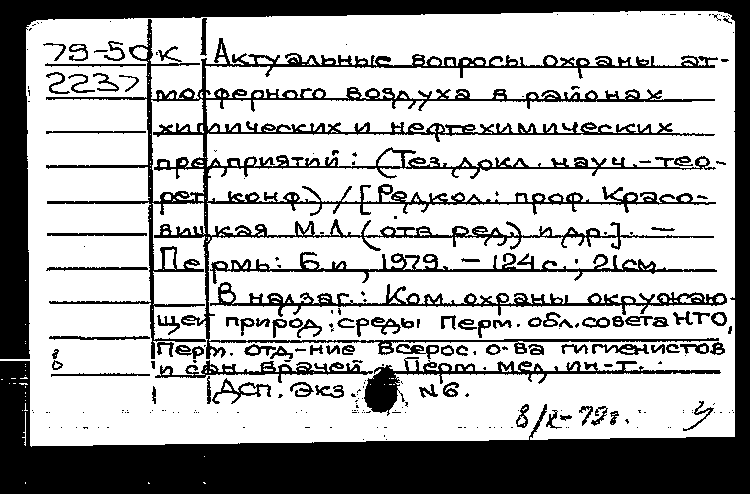 79-50к Актуальные вопросы охраны ат-
2237 мосферного воздуха в районах
химических и нефтехимических
предприятий: (Тез. докл. науч.-тео-
рет. конф.) / [Редкол.: проф. Красо-
вицкая М.Л. (отв ред.) и др.]. —
Пермь: Б.и, 1979. – 124 с.; 21 см.
В надзаг.: Ком. охраны окружаю-
щей природ. среды Перм. обл. совета НТО,
Перм. отд-ние Всерос. о-ва гигиенистов
и сан. врачей, Перм. мед. ин-т.
ДСП. Экз. №6.
8/X-79г.